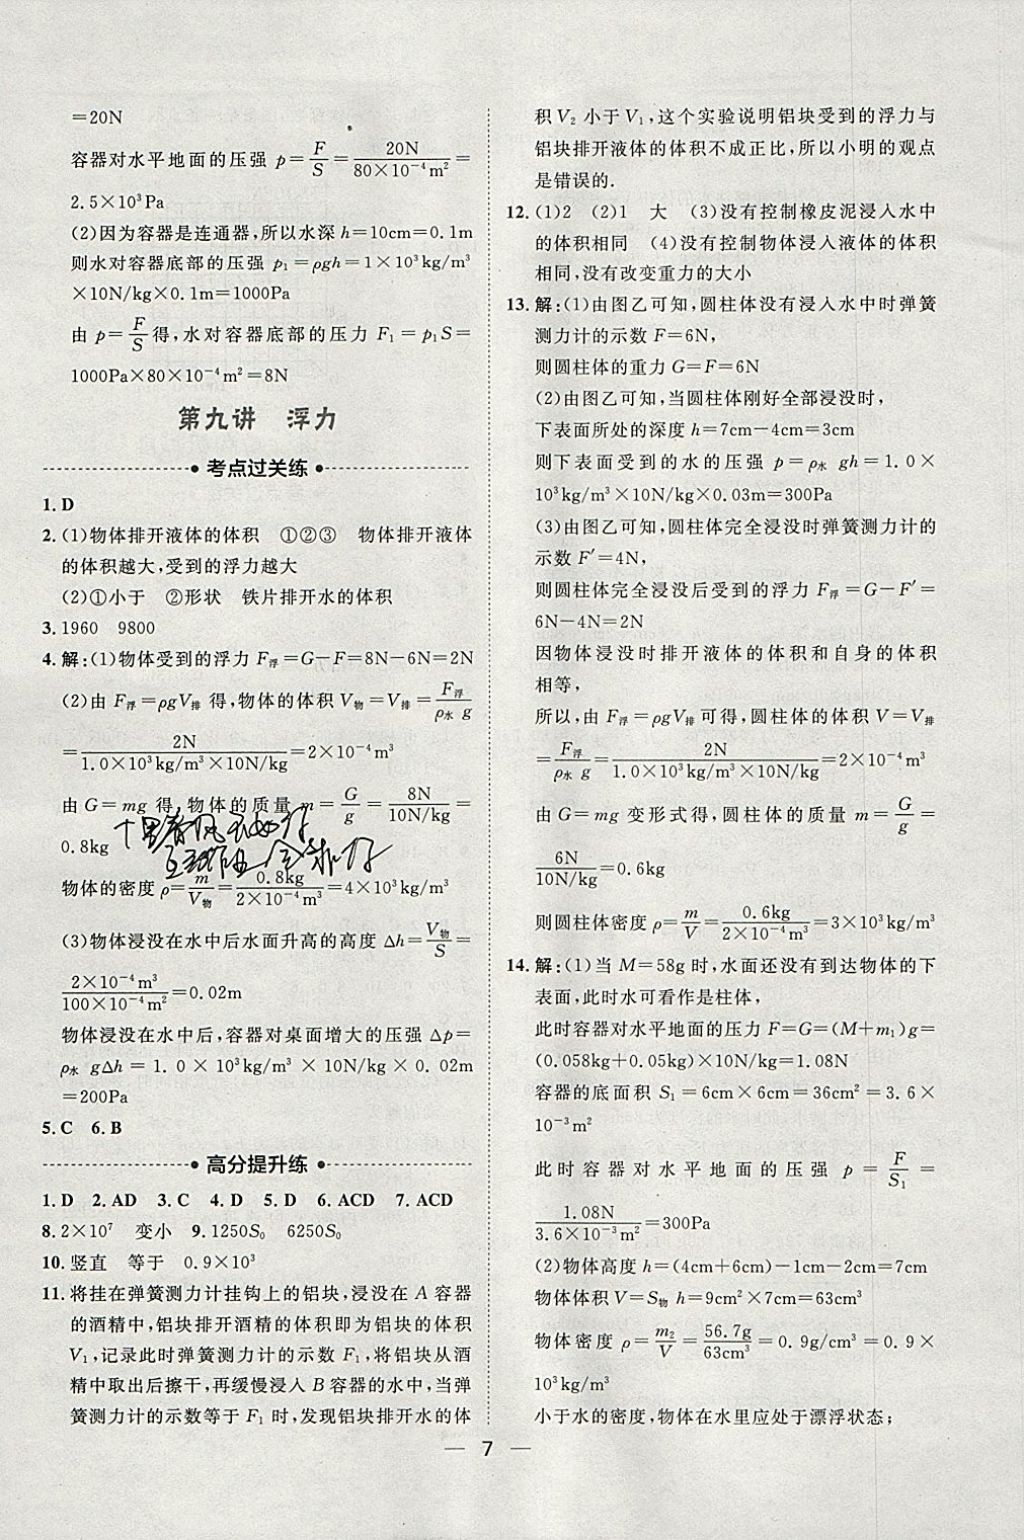 =20N
容器对水平地面的压强 p=F/S=20N/(80×10⁻⁴m²)=
2.5×10³Pa
(2)因为容器是连通器,所以水深 h=10cm=0.1m
则水对容器底部的压强 p₁=ρgh=1×10³kg/m³
×10N/kg×0.1m=1000Pa
由 p=F/S得,水对容器底部的压力 F₁=p₁S=
1000Pa×80×10⁻⁴m²=8N
第九讲 浮力
考点过关练
1.D
2.(1)物体排开液体的体积 ①②③ 物体排开液体
的体积越大,受到的浮力越大
(2)①小于 ②形状 铁片排开水的体积
3.1960 9800
4.解:(1)物体受到的浮力 F浮=G-F=8N-6N=2N
(2)由 F浮=ρgV排 得,物体的体积 V物=V排=F浮/(ρ水 g)
=2N/(1.0×10³kg/m³×10N/kg)=2×10⁻⁴m³
由 G=mg 得,物体的质量 m=G/g=8N/(10N/kg)=
0.8kg
物体的密度 ρ=m/V物=0.8kg/(2×10⁻⁴m³)=4×10³kg/m³
(3)物体浸没在水中后水面升高的高度 Δh=V物/S=
2×10⁻⁴m³/(100×10⁻⁴m²)=0.02m
物体浸没在水中后,容器对桌面增大的压强 Δp=
ρ水 gΔh=1.0×10³kg/m³×10N/kg×0.02m
=200Pa
5.C 6.B
高分提升练
1.D 2.AD 3.C 4.D 5.D 6.ACD 7.ACD
8.2×10⁷ 变小 9.1250S₀ 6250S₀
10.竖直 等于 0.9×10³
11.将挂在弹簧测力计挂钩上的铝块,浸没在 A 容器
的酒精中,铝块排开酒精的体积即为铝块的体积
V₁,记录此时弹簧测力计的示数 F₁,将铝块从酒
精中取出后擦干,再缓慢浸入 B 容器的水中,当弹
簧测力计的示数等于 F₁ 时,发现铝块排开水的体
积 V₂ 小于 V₁,这个实验说明铝块受到的浮力与
铝块排开液体的体积不成正比,所以小明的观点
是错误的.
12.(1)2 (2)1 大 (3)没有控制橡皮泥浸入水中
的体积相同 (4)没有控制物体浸入液体的体积
相同,没有改变重力的大小
13.解:(1)由图乙可知,圆柱体没有浸入水中时弹簧
测力计的示数 F=6N,
则圆柱体的重力 G=F=6N
(2)由图乙可知,当圆柱体刚好全部浸没时,
下表面所处的深度 h=7cm-4cm=3cm
则下表面受到的水的压强 p=ρ水 gh=1.0×
10³kg/m³×10N/kg×0.03m=300Pa
(3)由图乙可知,圆柱体完全浸没时弹簧测力计的
示数 F′=4N,
则圆柱体完全浸没后受到的浮力 F浮=G-F′=
6N-4N=2N
因物体浸没时排开液体的体积和自身的体积
相等,
所以,由 F浮=ρgV排可得,圆柱体的体积 V=V排
=F浮/(ρ水 g)=2N/(1.0×10³kg/m³×10N/kg)=2×10⁻⁴m³
由 G=mg 变形式得,圆柱体的质量 m=G/g=
6N/(10N/kg)=0.6kg
则圆柱体密度 ρ=m/V=0.6kg/(2×10⁻⁴m³)=3×10³kg/m³
14.解:(1)当 M=58g 时,水面还没有到达物体的下
表面,此时水可看作是柱体,
此时容器对水平地面的压力 F=G=(M+m₁)g=
(0.058kg+0.05kg)×10N/kg=1.08N
容器的底面积 S₁=6cm×6cm=36cm²=3.6×
10⁻³m²
此时容器对水平地面的压强 p=F/S₁=
1.08N/(3.6×10⁻³m²)=300Pa
(2)物体高度 h=(4cm+6cm)-1cm-2cm=7cm
物体体积 V=S物 h=9cm²×7cm=63cm³
物体密度 ρ=m₂/V=56.7g/63cm³=0.9g/cm³=0.9×
10³kg/m³
小于水的密度,物体在水里应处于漂浮状态;
7